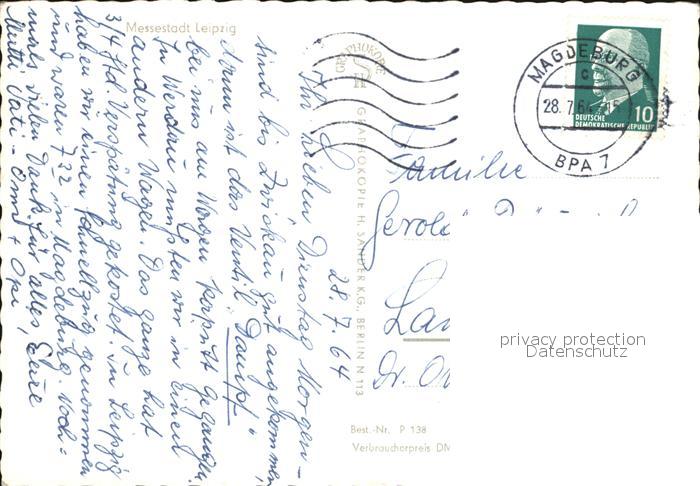 Messestadt Leipzig
28.7.64
Ihr lieben Dienstag Morgen -
sind bis Zwickau gut angekommen
dann ist das Ventil "Dampf"
bei uns am Wagen kaputt gegangen.
In Werdau mußten wir in einen
andern Wagen. Das ganze hat
3/4 Std. Verspätung gekostet. In Leipzig
haben wir einen Schnellzug genommen
und waren 7 22 in Magdeburg. Noch-
mals vielen Dank für alles, Eure
Mutti Vati - Omi + Opi
GRAPHOKOPIE
H S
GRAPHOKOPIE H. SANDER K.G., BERLIN N 113
MAGDEBURG
c
28.7.64
BPA 7
10
DEUTSCHE
DEMOKRATISCHE REPUBLIK
Familie
Gerold
Dr.
privacy protection
Datenschutz
Best.-Nr. P 138
Verbraucherpreis DM